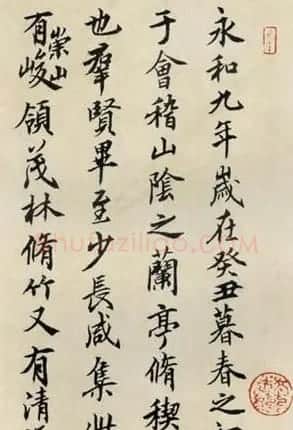 永和九年歲在癸丑暮春之
于會稽山陰之蘭亭脩稧
也羣賢畢至少長咸集此
有崇山峻領茂林脩竹又有清